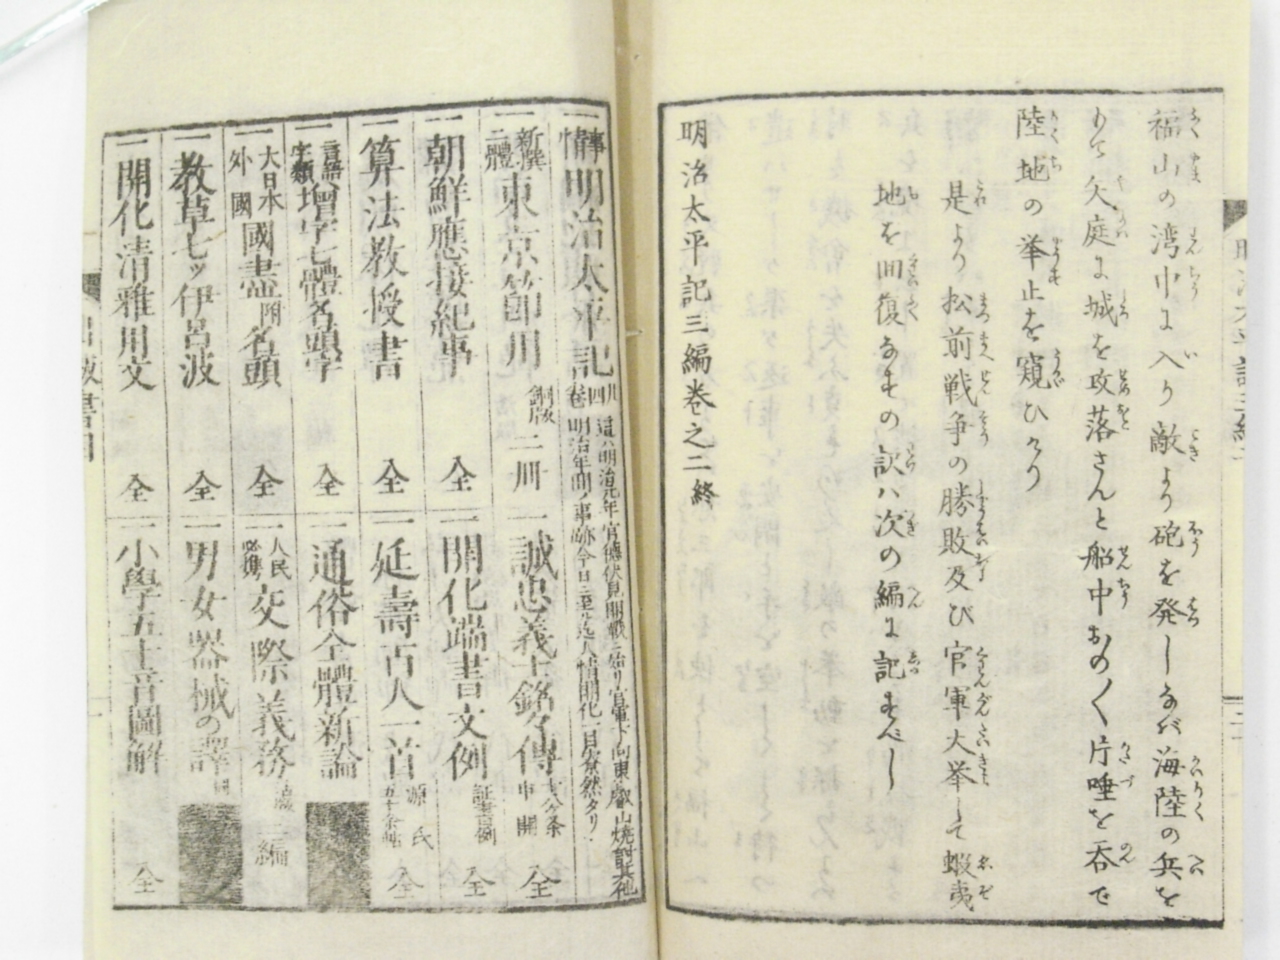 福山の湾中に入り敵より砲を発しなば海陸の兵を
もて矢庭に城を攻落さんと船中おの〳〵片唾を呑で
陸地の挙止を窺ひけり
是より松前戦争の勝敗及び官軍大挙して蝦夷
地を回復なすの訳ハ次の編に記すべし
明治太平記三編巻之二終
事情明治太平記
這ハ明治元年官德伏見開戰ニ始リ官軍下向東叡山焼討其他
明治年間ノ事跡今日ニ至ル迄人情開化一目瞭然タリ
新撰二體東京節用 銅版 二冊
誠忠義士銘々傳
朝鮮應接紀事 全
開化端書文例 証書文例 全
算法教授書 全
延壽百人一首 源氏五十四帖 全
言語字類増字七體名頭字 全
通俗全體新論
大日本外國國盡附名頭 全
人民必携交際義務 三編
教草七ッ伊呂波 全
男女器械の譯
開化清雅用文 全
小學五十音圖解 全
出版書目